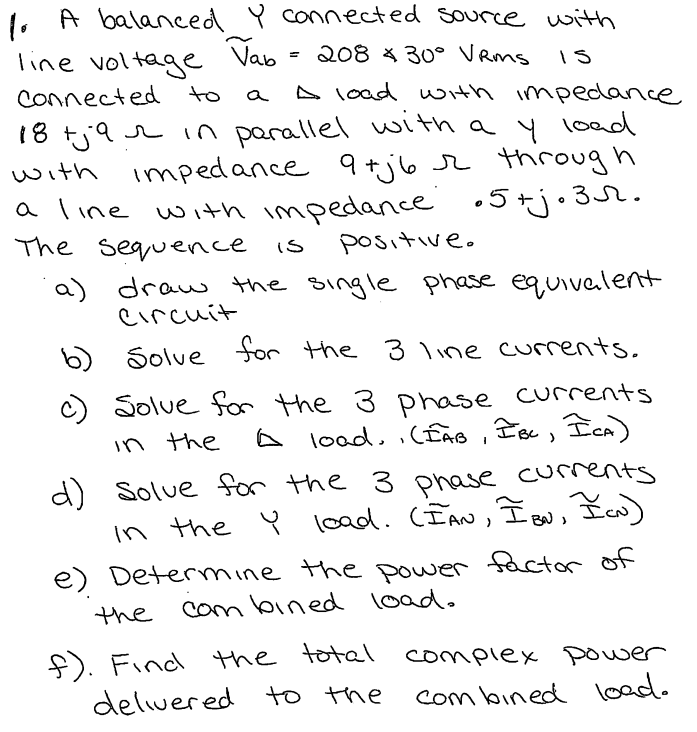 1. A balanced Y connected source with
line voltage Ṽab = 208 ∡ 30° VRms is
connected to a Δ load with impedance
18 + j9 Ω in parallel with a y load
with impedance 9 + j6 Ω through
a line with impedance .5 + j.3Ω.
The sequence is positive.
a) draw the single phase equivalent
circuit
b) Solve for the 3 line currents.
c) Solve for the 3 phase currents
in the Δ load. (ĨAB, ĨBC, ĨCA)
d) Solve for the 3 phase currents
in the Y load. (ĨAN, ĨBN, ĨCN)
e) Determine the power factor of
the combined load.
f). Find the total complex power
delivered to the combined load.